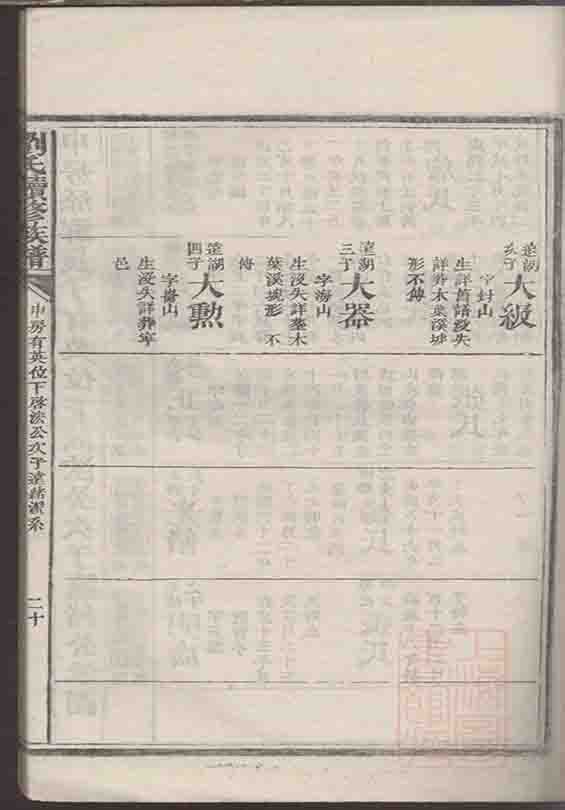 達湖次子
大級
字封山
生詳舊譜沒失
詳葬木葉溪坳
形不傳
達湖三子
大器
字海山
生沒失詳葬木
葉溪坳形 不
傳
達湖四子
大勲
字喬山
生沒失詳葬寧
邑
劉氏續修族譜
申房有英位下啓法公次子達緒潔系
二十